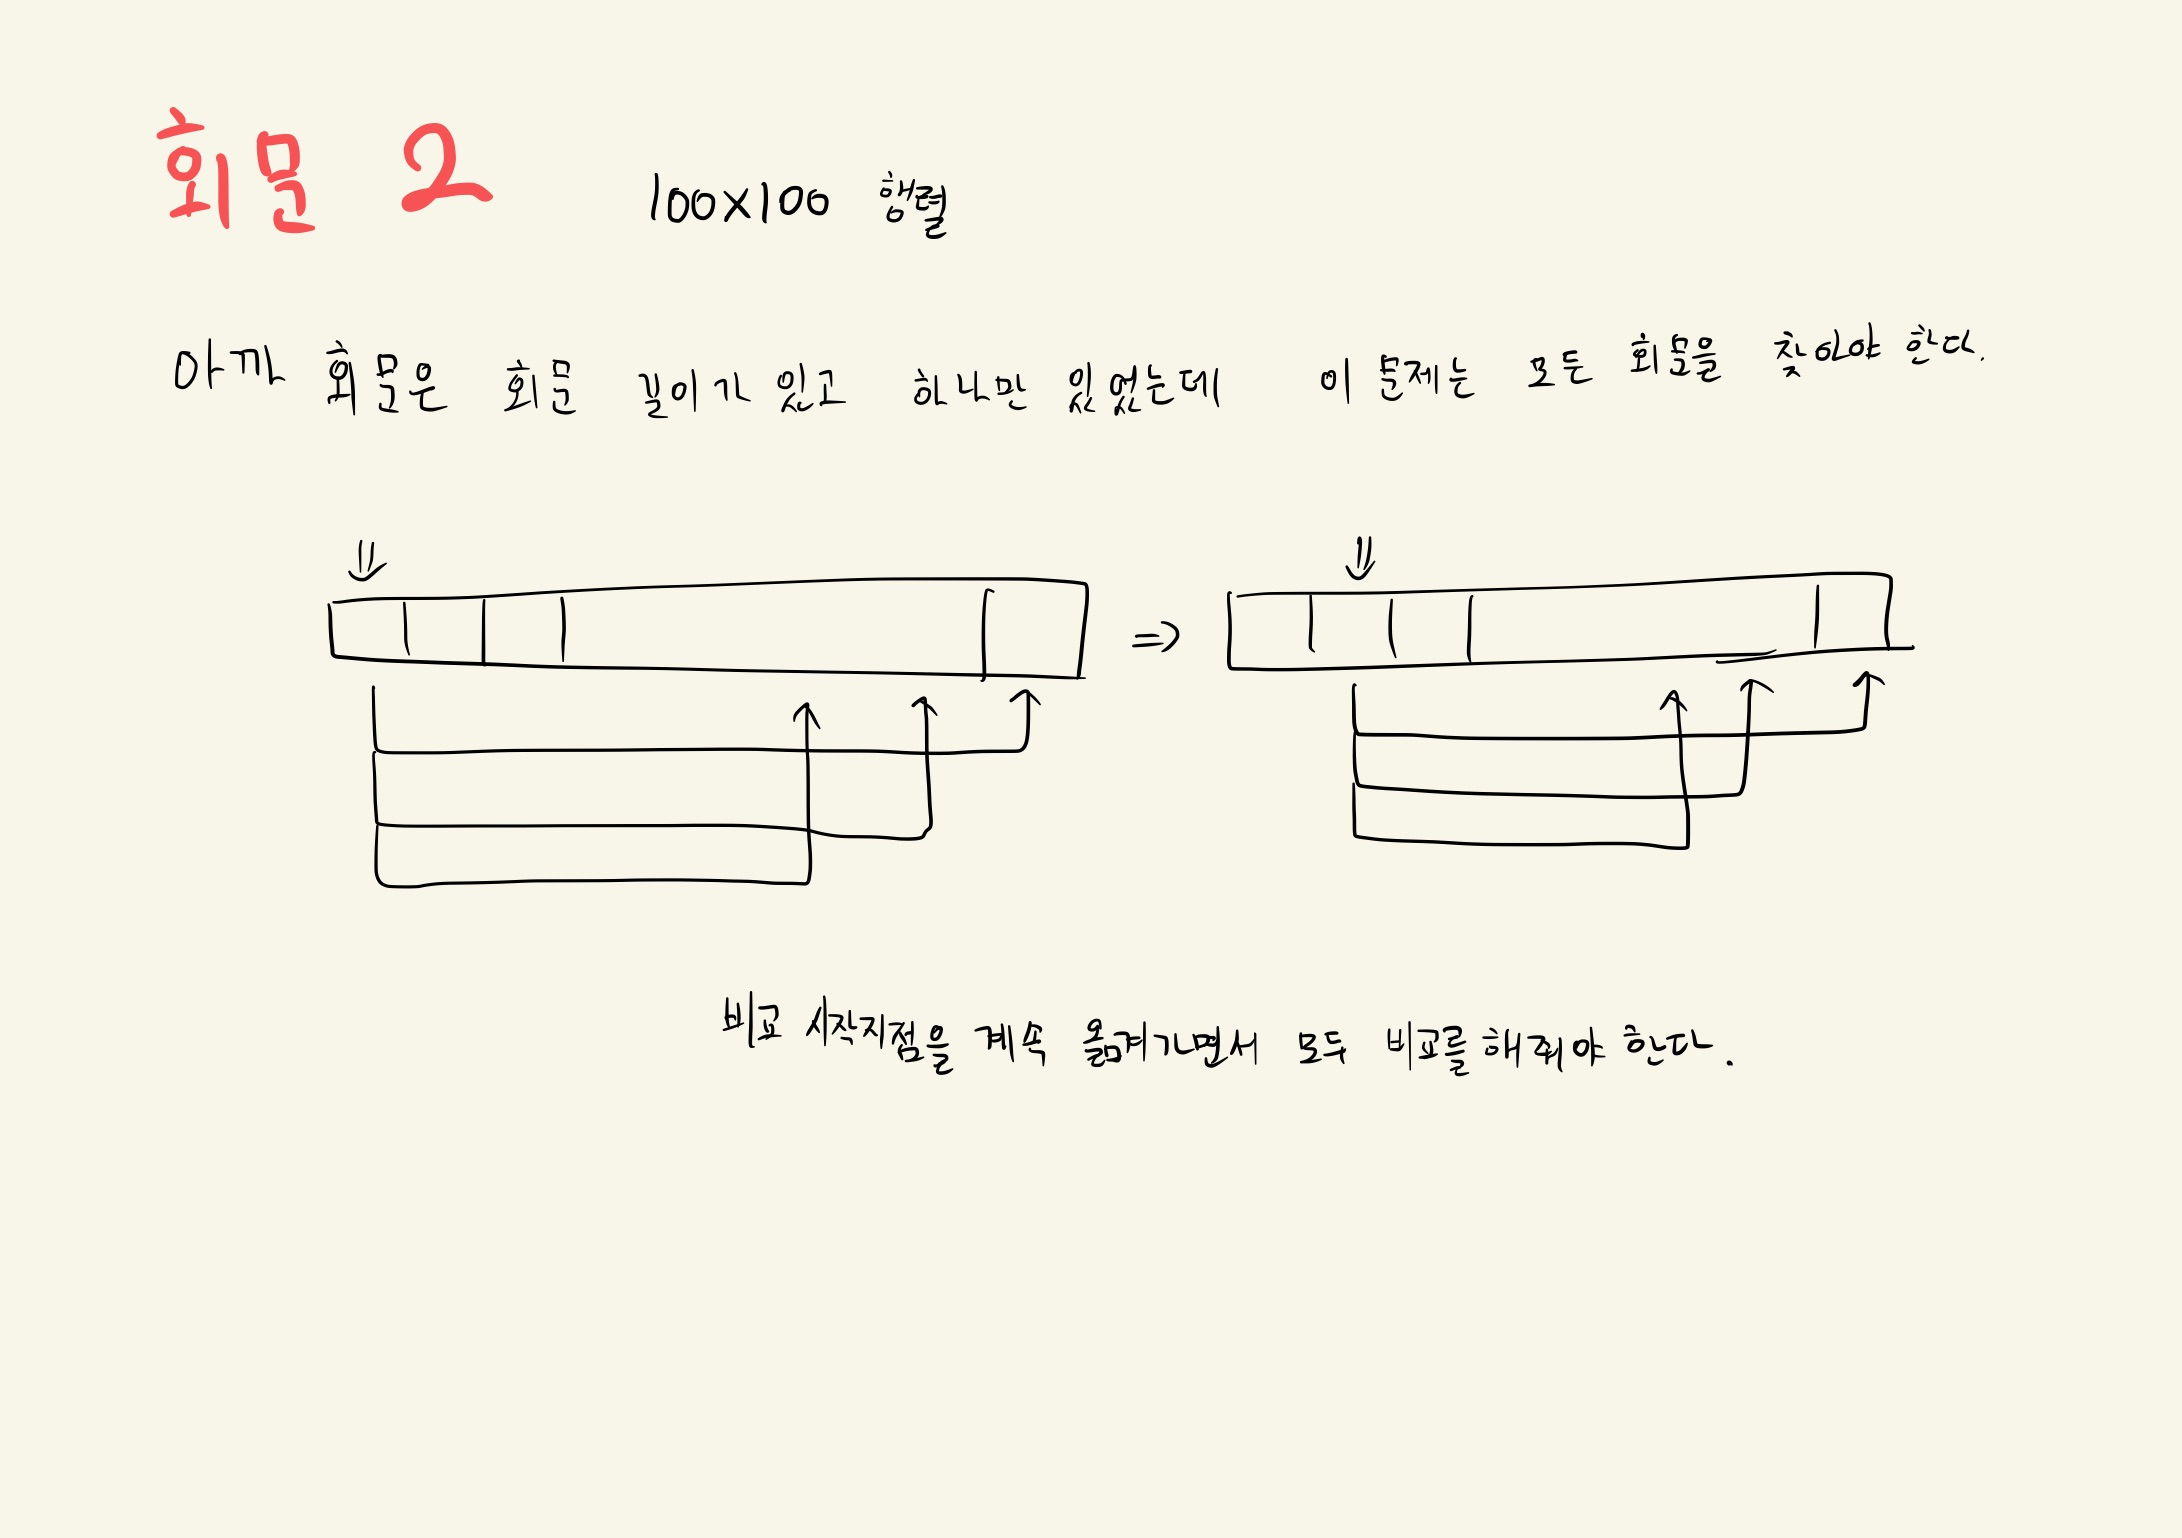 회문 2
100x100 행렬
아까 회문은 회문 길이가 있고 하나만 있었는데 이 문제는 모든 회문을 찾아야 한다.
비교 시작지점을 계속 옮겨가면서 모두 비교를 해줘야 한다.